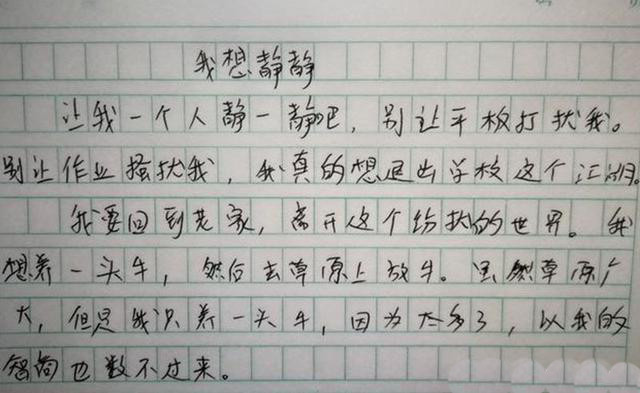 我想静静
让我一个人静一静吧，别让平板打扰我。
别让作业骚扰我，我真的想退出学校这个江湖。
我要回到老家，离开这个纷扰的世界。我
想养一头牛，然后去草原上放牛。虽然草原广
大，但是我只养一头牛，因为太多了，以我的
智商也数不过来。